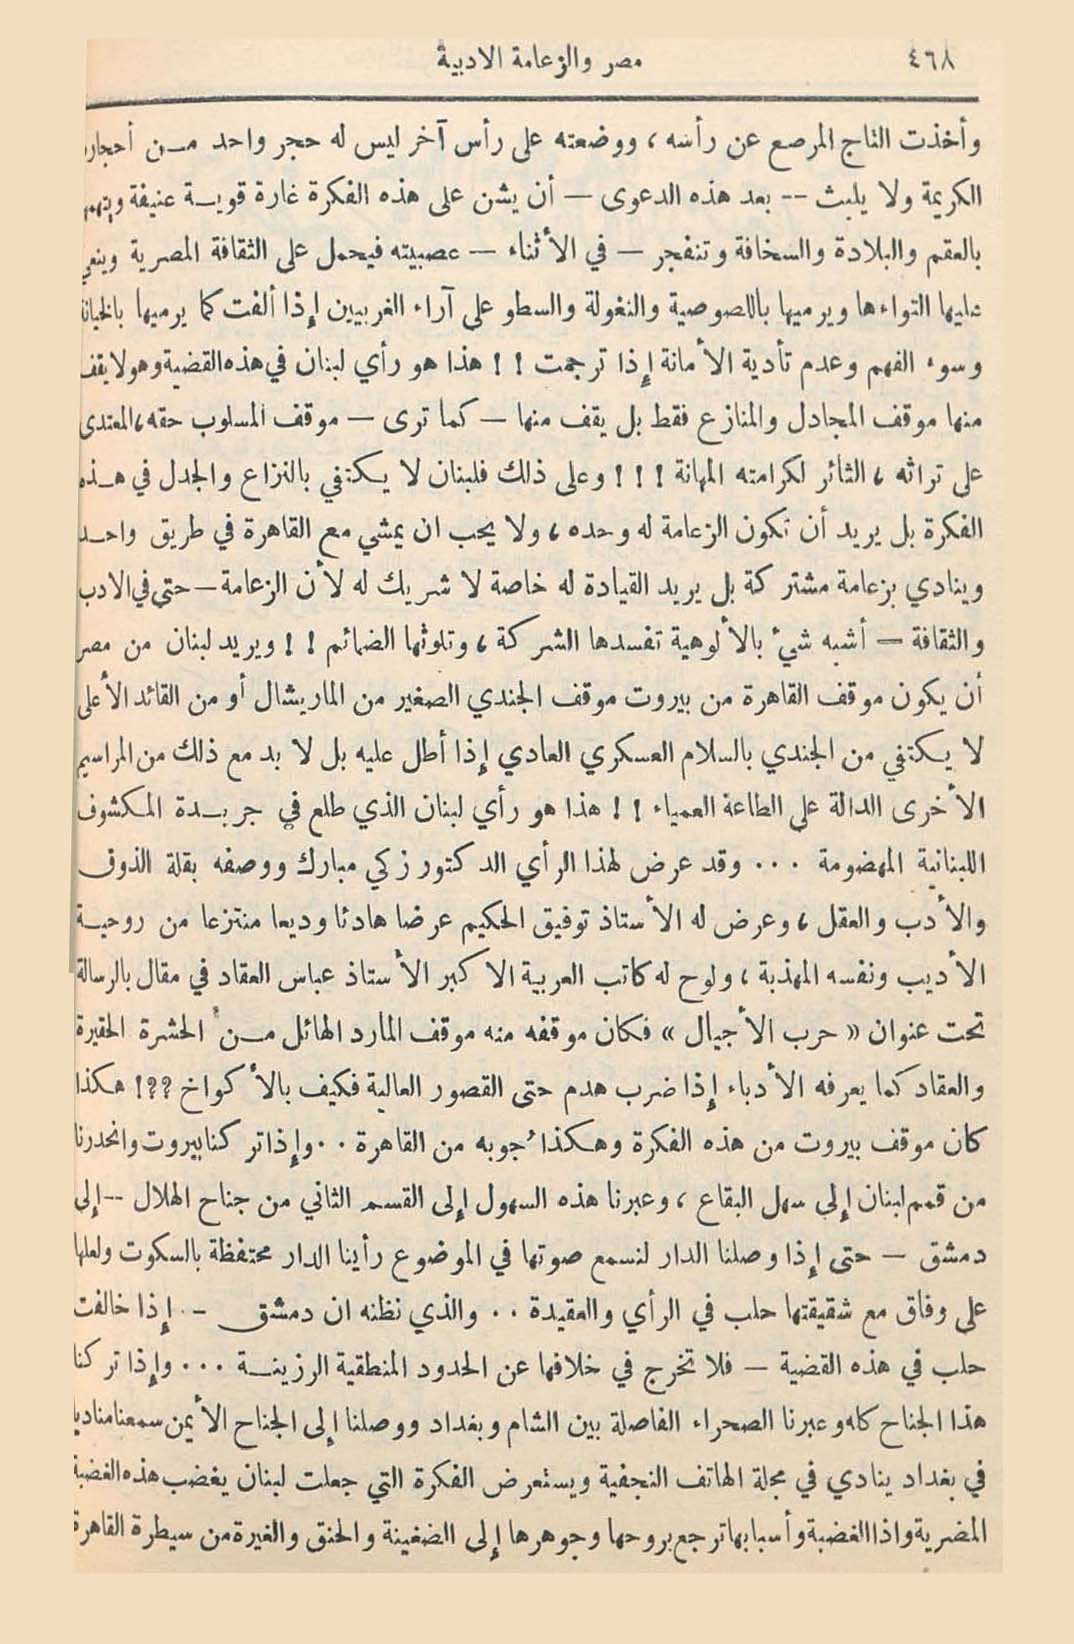 ٤٦٨
مصر والزعامة الادبية
وأخذت التاج المرصع عن رأسه ، ووضعته على رأس آخر ليس له حجر واحد مـن أحجاره
الكريمة ولا يلبث -- بعد هذه الدعوى — أن يشن على هذه الفكرة غارة قويـة عنيفة ويتهمها
بالعقم والبلادة والسخافة وتنفجر — في الأثناء — عصبيته فيحمل على الثقافة المصرية وينعي
عليها التواءها ويرميها باللصوصية والنغولة والسطو على آراء الغربيين إذا ألفت كما يرميها بالخيانة
وسوء الفهم وعدم تأدية الأمانة إذا ترجمت ! ! هذا هو رأي لبنان في هذه القضية وهو لا يقف
منها موقف المجادل والمنازع فقط بل يقف منها — كما ترى — موقف المسلوب حقه ، المعتدى
على تراثه ، الثائر لكرامته المهانة ! ! ! وعلى ذلك فلبنان لا يـكتفي بالنزاع والجدل في هـذه
الفكرة بل يريد أن تكون الزعامة له وحده ، ولا يحب ان يمشي مع القاهرة في طريق واحـد
وينادي بزعامة مشتركة بل يريد القيادة له خاصة لا شريك له لأن الزعامة — حتى في الادب
والثقافة — أشبه شيء بالألوهية تفسدها الشركة ، وتلوثها الضمائم ! ! ويريد لبنان من مصر
أن يكون موقف القاهرة من بيروت موقف الجندي الصغير من الماريشال أو من القائد الأعلى
لا يـكتفي من الجندي بالسلام العسكري العادي إذا أطل عليه بل لا بد مع ذلك من المراسيم
الأخرى الدالة على الطاعة العمياء ! ! هذا هو رأي لبنان الذي طلع في جريـدة المـكشوف
اللبنانية المهضومة ... وقد عرض لهذا الرأي الدكتور زكي مبارك ووصفه بقلة الذوق
والأدب والعقل ، وعرض له الأستاذ توفيق الحكيم عرضا هادئا وديعا منتزعا من روحيـة
الأديب ونفسه المهذبة ، ولوح له كاتب العربية الاكبر الأستاذ عباس العقاد في مقال بالرسالة
تحت عنوان « حرب الأجيال » فكان موقفه منه موقف المارد الهائل مـن الحشرة الحقيرة
والعقاد كما يعرفه الأدباء إذا ضرب هدم حتى القصور العالية فكيف بالأكواخ ؟؟! هكذا
كان موقف بيروت من هذه الفكرة وهـكذا جوبه من القاهرة .. وإذا تركنا بيروت وانحدرنا
من قمم لبنان إلى سهل البقاع ، وعبرنا هذه السهول إلى القسم الثاني من جناح الهلال -- إلى
دمشق — حتى إذا وصلنا الدار لنسمع صوتها في الموضوع رأينا الدار محتفظة بالسكوت ولعلها
على وفاق مع شقيقتها حلب في الرأي والعقيدة .. والذي نظنه ان دمشق - إذا خالفت
حلب في هذه القضية — فلا تخرج في خلافها عن الحدود المنطقية الرزينـة ... وإذا تركنا
هذا الجناح كله وعبرنا الصحراء الفاصلة بين الشام وبغداد ووصلنا إلى الجناح الأيمن سمعنا مناديا
في بغداد ينادي في مجلة الهاتف النجفية ويستعرض الفكرة التي جعلت لبنان يغضب هذه الغضبة
المضرية واذا الغضبة وأسبابها ترجع بروحها وجوهرها إلى الضغينة والحنق والغيرة من سيطرة القاهرة